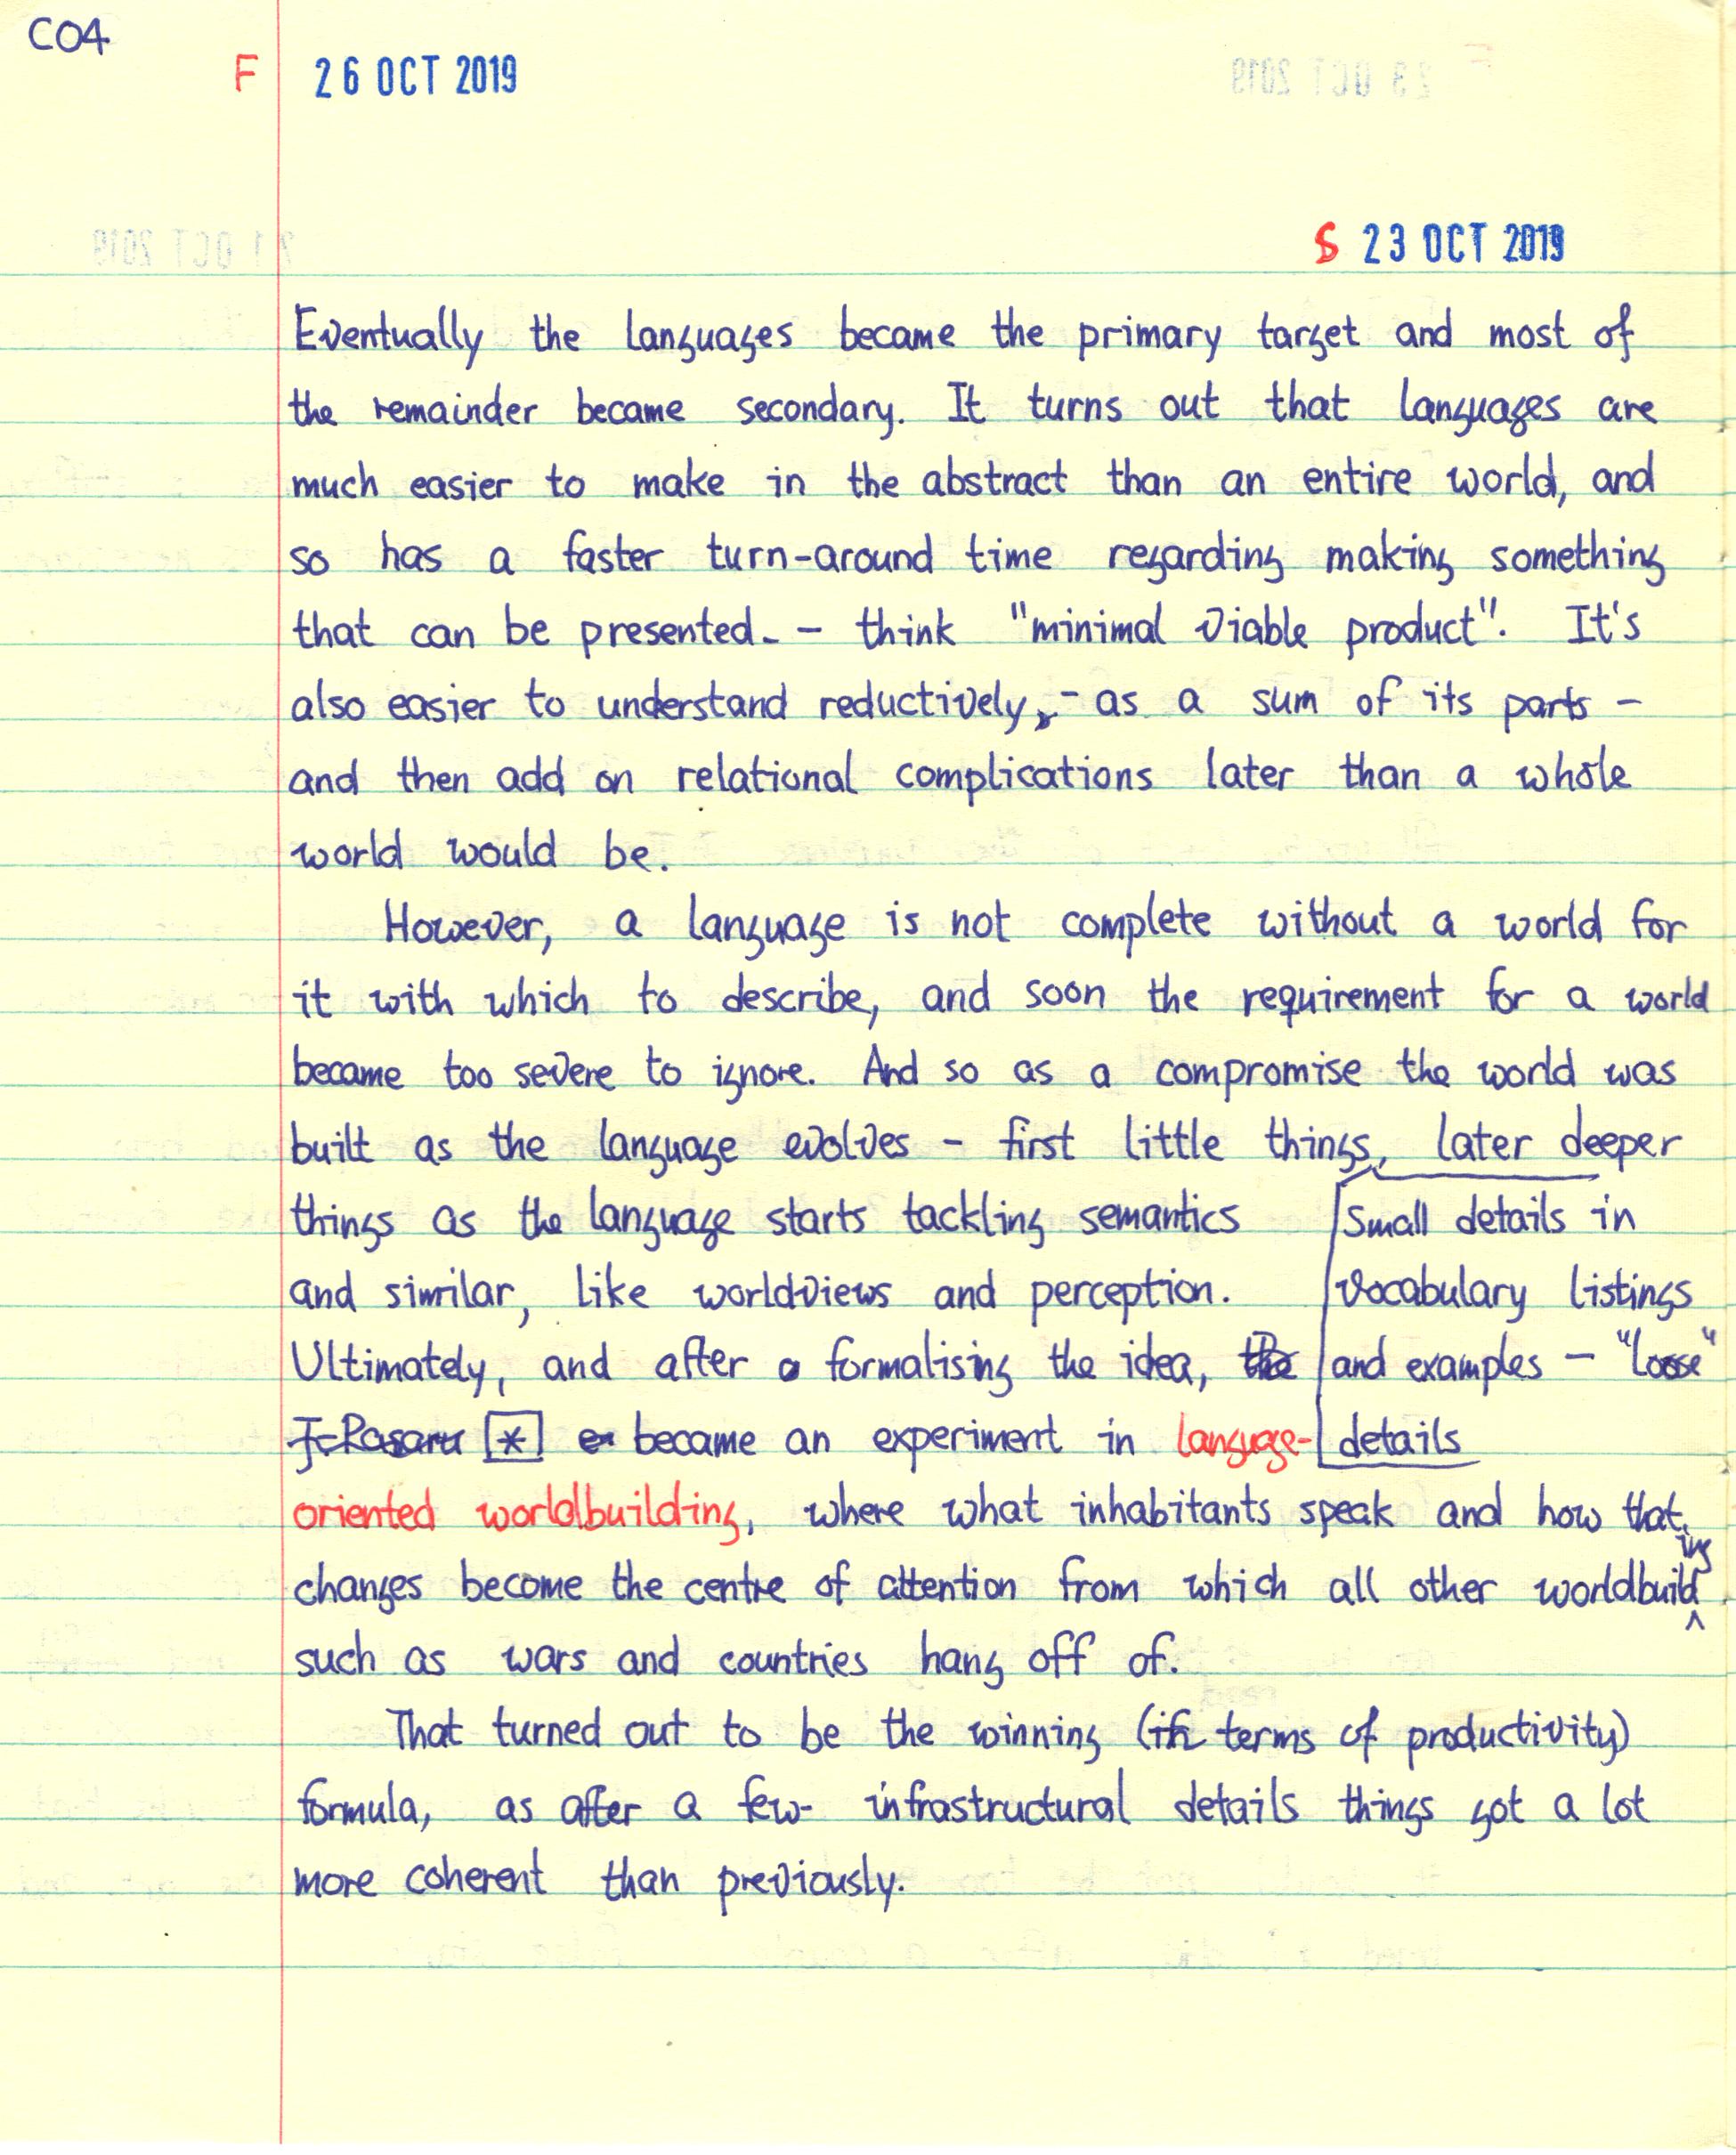 C04
F 26 OCT 2019
S 23 OCT 2019
Eventually the languages became the primary target and most of
the remainder became secondary. It turns out that languages are
much easier to make in the abstract than an entire world, and
so has a faster turn-around time regarding making something
that can be presented. – think "minimal viable product". It's
also easier to understand reductively, – as a sum of its parts –
and then add on relational complications later than a whole
world would be.
However, a language is not complete without a world for
it with which to describe, and soon the requirement for a world
became too severe to ignore. And so as a compromise the world was
built as the language evolves – first little things, later deeper
things as the language starts tackling semantics
and similar, like worldviews and perception.
Ultimately, and after a formalising the idea, the
[*] became an experiment in language-
oriented worldbuilding, where what inhabitants speak and how that
changes become the centre of attention from which all other worldbuilding
such as wars and countries hang off of.
That turned out to be the winning (in terms of productivity)
formula, as after a few infrastructural details things got a lot
more coherent than previously.
Small details in
vocabulary listings
and examples – "loose"
details